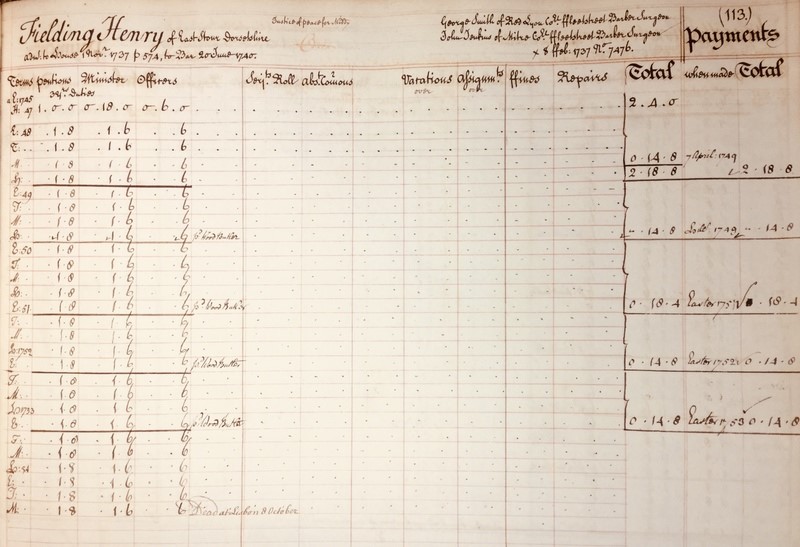 Justice of peace for Midd.
(113.)
Fielding Henry of East Stour Dorsetshire
George Smith of Red Lyon Cot. ffleetstreet Barber Surgeon
John Jenkins of Mitre Cot. ffleetstreet Barber Surgeon
admt. to House 1 Nov. 1737 p 574, to Bar 20 June 1740.
x 8 ffeb. 1737 No. 7476.
Payments
Terms pentions Minister Officers Roll Vacations Assignmts. ffines Repairs Total when made Total
over over
1. 0. 0 0. 18. 0 0. 6. 0 2. 4. 0
E: 48 1. 8 1. 6 6
T: 1. 8 1. 6 6
M: 1. 8 1. 6 6 0. 14. 8 7 April 1749
H: 1. 8 1. 6 6 2. 18. 8 2. 18. 8
E: 49 1. 8 1. 6 6
T: 1. 8 1. 6 6
M: 1. 8 1. 6 6
H: 1. 8 1. 6 6 14. 8 1749 14. 8
E: 50 1. 8 1. 6 6
T: 1. 8 1. 6 6
M: 1. 8 1. 6 6
H: 1. 8 1. 6 6
E: 51 1. 8 1. 6 6 0. 18. 4 Easter 1751 18. 4
T: 1. 8 1. 6 6
M: 1. 8 1. 6 6
H: 1752 1. 8 1. 6 6
E: 1. 8 1. 6 6 0. 14. 8 Easter 1752 0. 14. 8
T: 1. 8 1. 6 6
M: 1. 8 1. 6 6
H: 1753 1. 8 1. 6 6
E: 1. 8 1. 6 6 0. 14. 8 Easter 1753 0. 14. 8
T: 1. 8 1. 6 6
M: 1. 8 1. 6 6
H: 54 1. 8 1. 6 6
E: 1. 8 1. 6 6
T: 1. 8 1. 6 6
M: 1. 8 1. 6 6 Dead at Lisbon 8 October